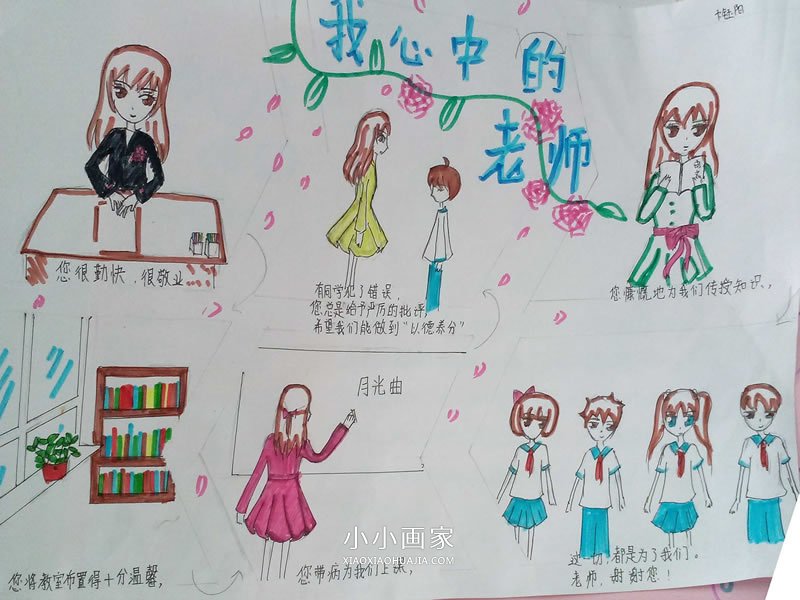 我心中的
老师
您很勤快，很敬业
有同学犯了错误，
您总是给予严厉的批评，
希望我们能做到“以德泰分”
您慷慨地为我们传授知识，
您将教室布置得十分温馨，
月光曲
您带病为我们上课，
这一切，都是为了我们。
老师，谢谢您！
小小画家
XIAOXIAOHUAJIA.COM